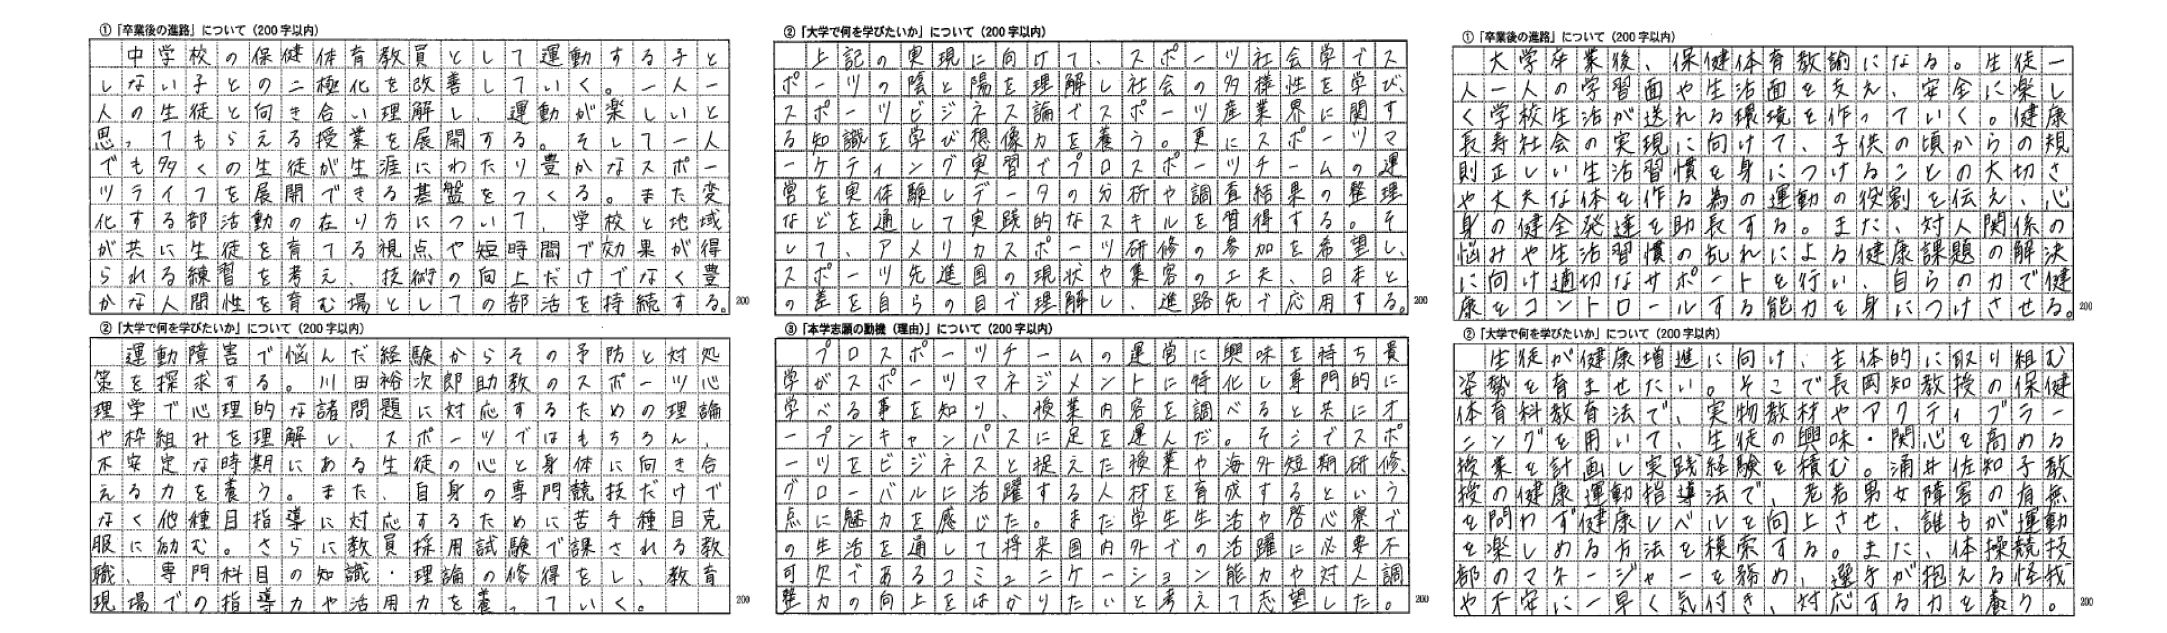 ①「卒業後の進路」について（200字以内）
中学校の保健体育教員として運動する子と
しない子との二極化を改善していく。一人一
人の生徒と向き合い理解し、運動が楽しいと
思ってもらえる授業を展開する。そして一人
でも多くの生徒が生涯にわたり豊かなスポー
ツライフを展開できる基盤をつくる。また変
化する部活動の在り方について、学校と地域
が共に生徒を育てる視点や短時間で効果が得
られる練習を考え、技術の向上だけでなく豊
かな人間性を育む場としての部活を持続する。
200
②「大学で何を学びたいか」について（200字以内）
運動障害で悩んだ経験からその予防と対処
策を探求する。川田裕次郎助教のスポーツ心
理学で心理的な諸問題に対応するための理論
や枠組みを理解し、スポーツではもちろん、
不安定な時期にある生徒の心と身体に向き合
える力を養う。また、自身の専門競技だけで
なく他種目指導に対応するために苦手種目克
服に励む。さらに教員採用試験で課される教
職、専門科目の知識・理論の修得をし、教育
現場での指導力や活用力を養っていく。
200
②「大学で何を学びたいか」について（200字以内）
上記の実現に向けて、スポーツ社会学でス
ポーツの陰と陽を理解し社会の多様性を学び、
スポーツビジネス論でスポーツ産業界に関す
る知識を学び想像力を養う。更にスポーツマ
ーケティング実習でプロスポーツチームの運
営を実体験しデータの分析や調査結果の整理
などを通して実践的なスキルを習得する。そ
して、アメリカスポーツ研修の参加を希望し、
スポーツ先進国の現状や集客の工夫、日本と
の差を自らの目で理解し、進路先で応用する。
200
③「本学志願の動機（理由）」について（200字以内）
プロスポーツチームの運営に興味を持ち貴
学がスポーツマネジメントに特化し専門的に
学べる事を知り、授業内容を調べると共にオ
ープンキャンパスに足を運んだ。そこでスポ
ーツをビジネスと捉えた授業や海外短期研修、
グローバルに活躍する人材を育成するという
点に魅力を感じた。また学生生活や啓心寮で
の生活を通して将来国内外での活躍に必要不
可欠であるコミュニケーション能力や対人調
整力の向上をはかりたいと考えて志望した。
200
①「卒業後の進路」について（200字以内）
大学卒業後、保健体育教諭になる。生徒一
人一人の学習面や生活面を支え、安全に楽し
く学校生活が送れる環境を作っていく。健康
長寿社会の実現に向けて、子供の頃からの規
則正しい生活習慣を身につけることの大切さ
や丈夫な体を作る為の運動の役割を伝え、心
身の健全発達を助長する。また、対人関係の
悩みや生活習慣の乱れによる健康課題の解決
に向け適切なサポートを行い、自らの力で健
康をコントロールする能力を身につけさせる。
200
②「大学で何を学びたいか」について（200字以内）
生徒が健康増進に向け、主体的に取り組む
姿勢を育ませたい。そこで長岡知教授の保健
体育科教育法で、実物教材やアクティブラー
ニングを用いて、生徒の興味・関心を高める
授業を計画し実践経験を積む。涌井佐知子教
授の健康運動指導法で、老若男女障害の有無
を問わず健康レベルを向上させ、誰もが運動
を楽しめる方法を模索する。また、体操競技
部のマネージャーを務め、選手が抱える怪我
や不安に一早く気付き、対応する力を養う。
200